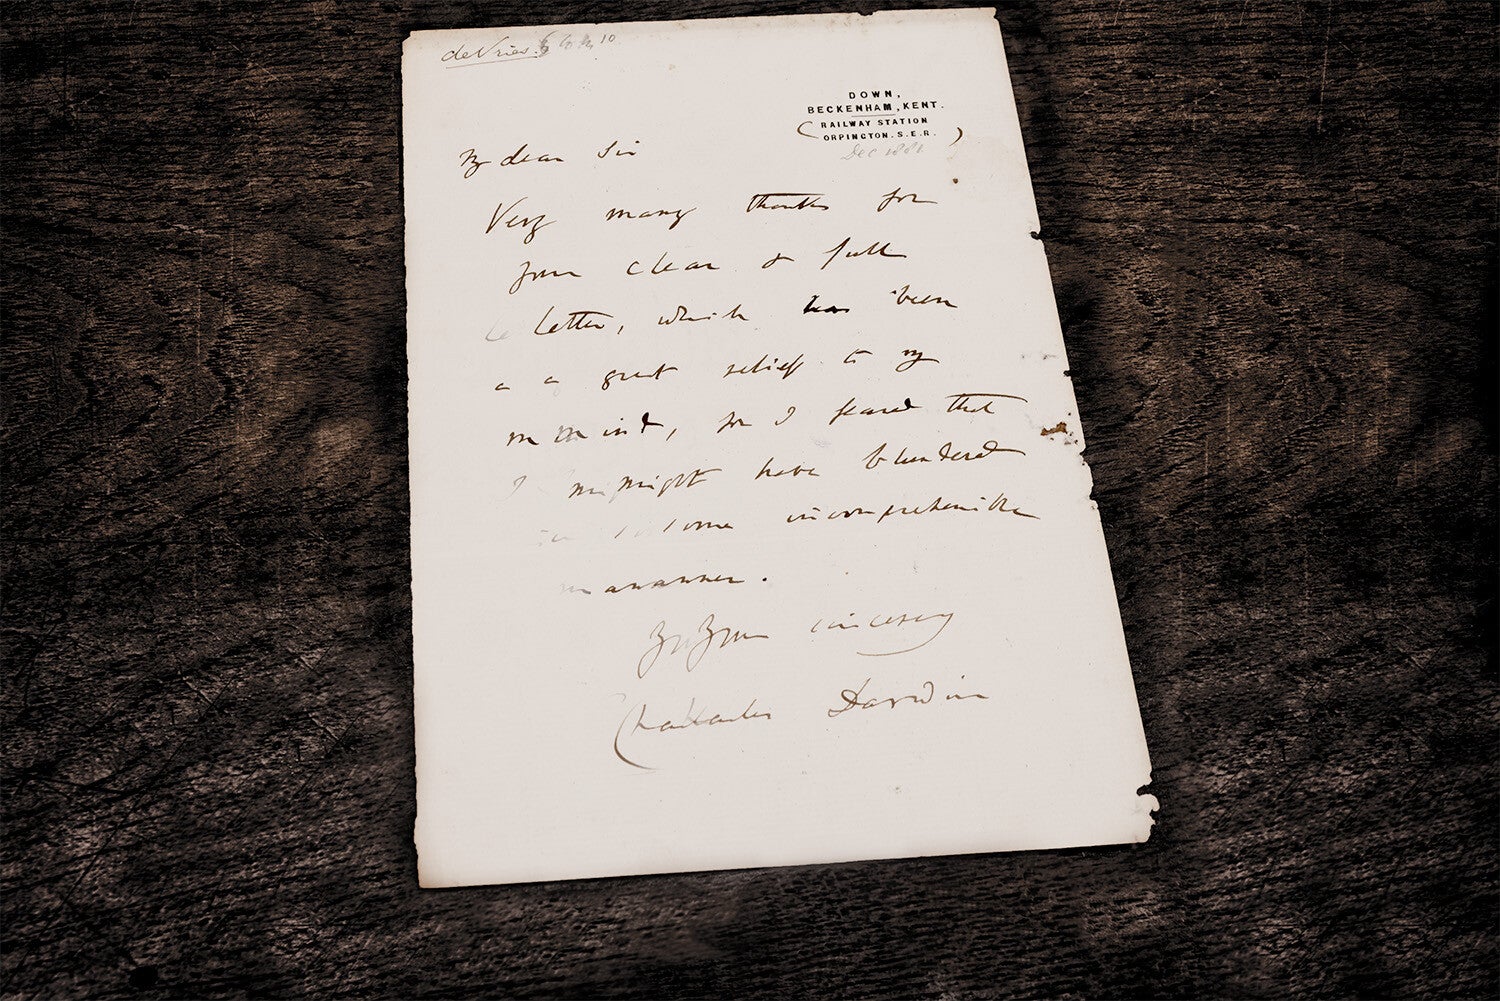 de Vries. 10
DOWN,
BECKENHAM, KENT.
(RAILWAY STATION
ORPINGTON. S.E.R.)
Dec 1881
My dear Sir
Very many thanks for
your clear & full
letter, which has been
a a great relief to my
m mind, for I feared that
I might have blundered
in some incomprehensible
manner.
Yours sincerely
Charles Darwin